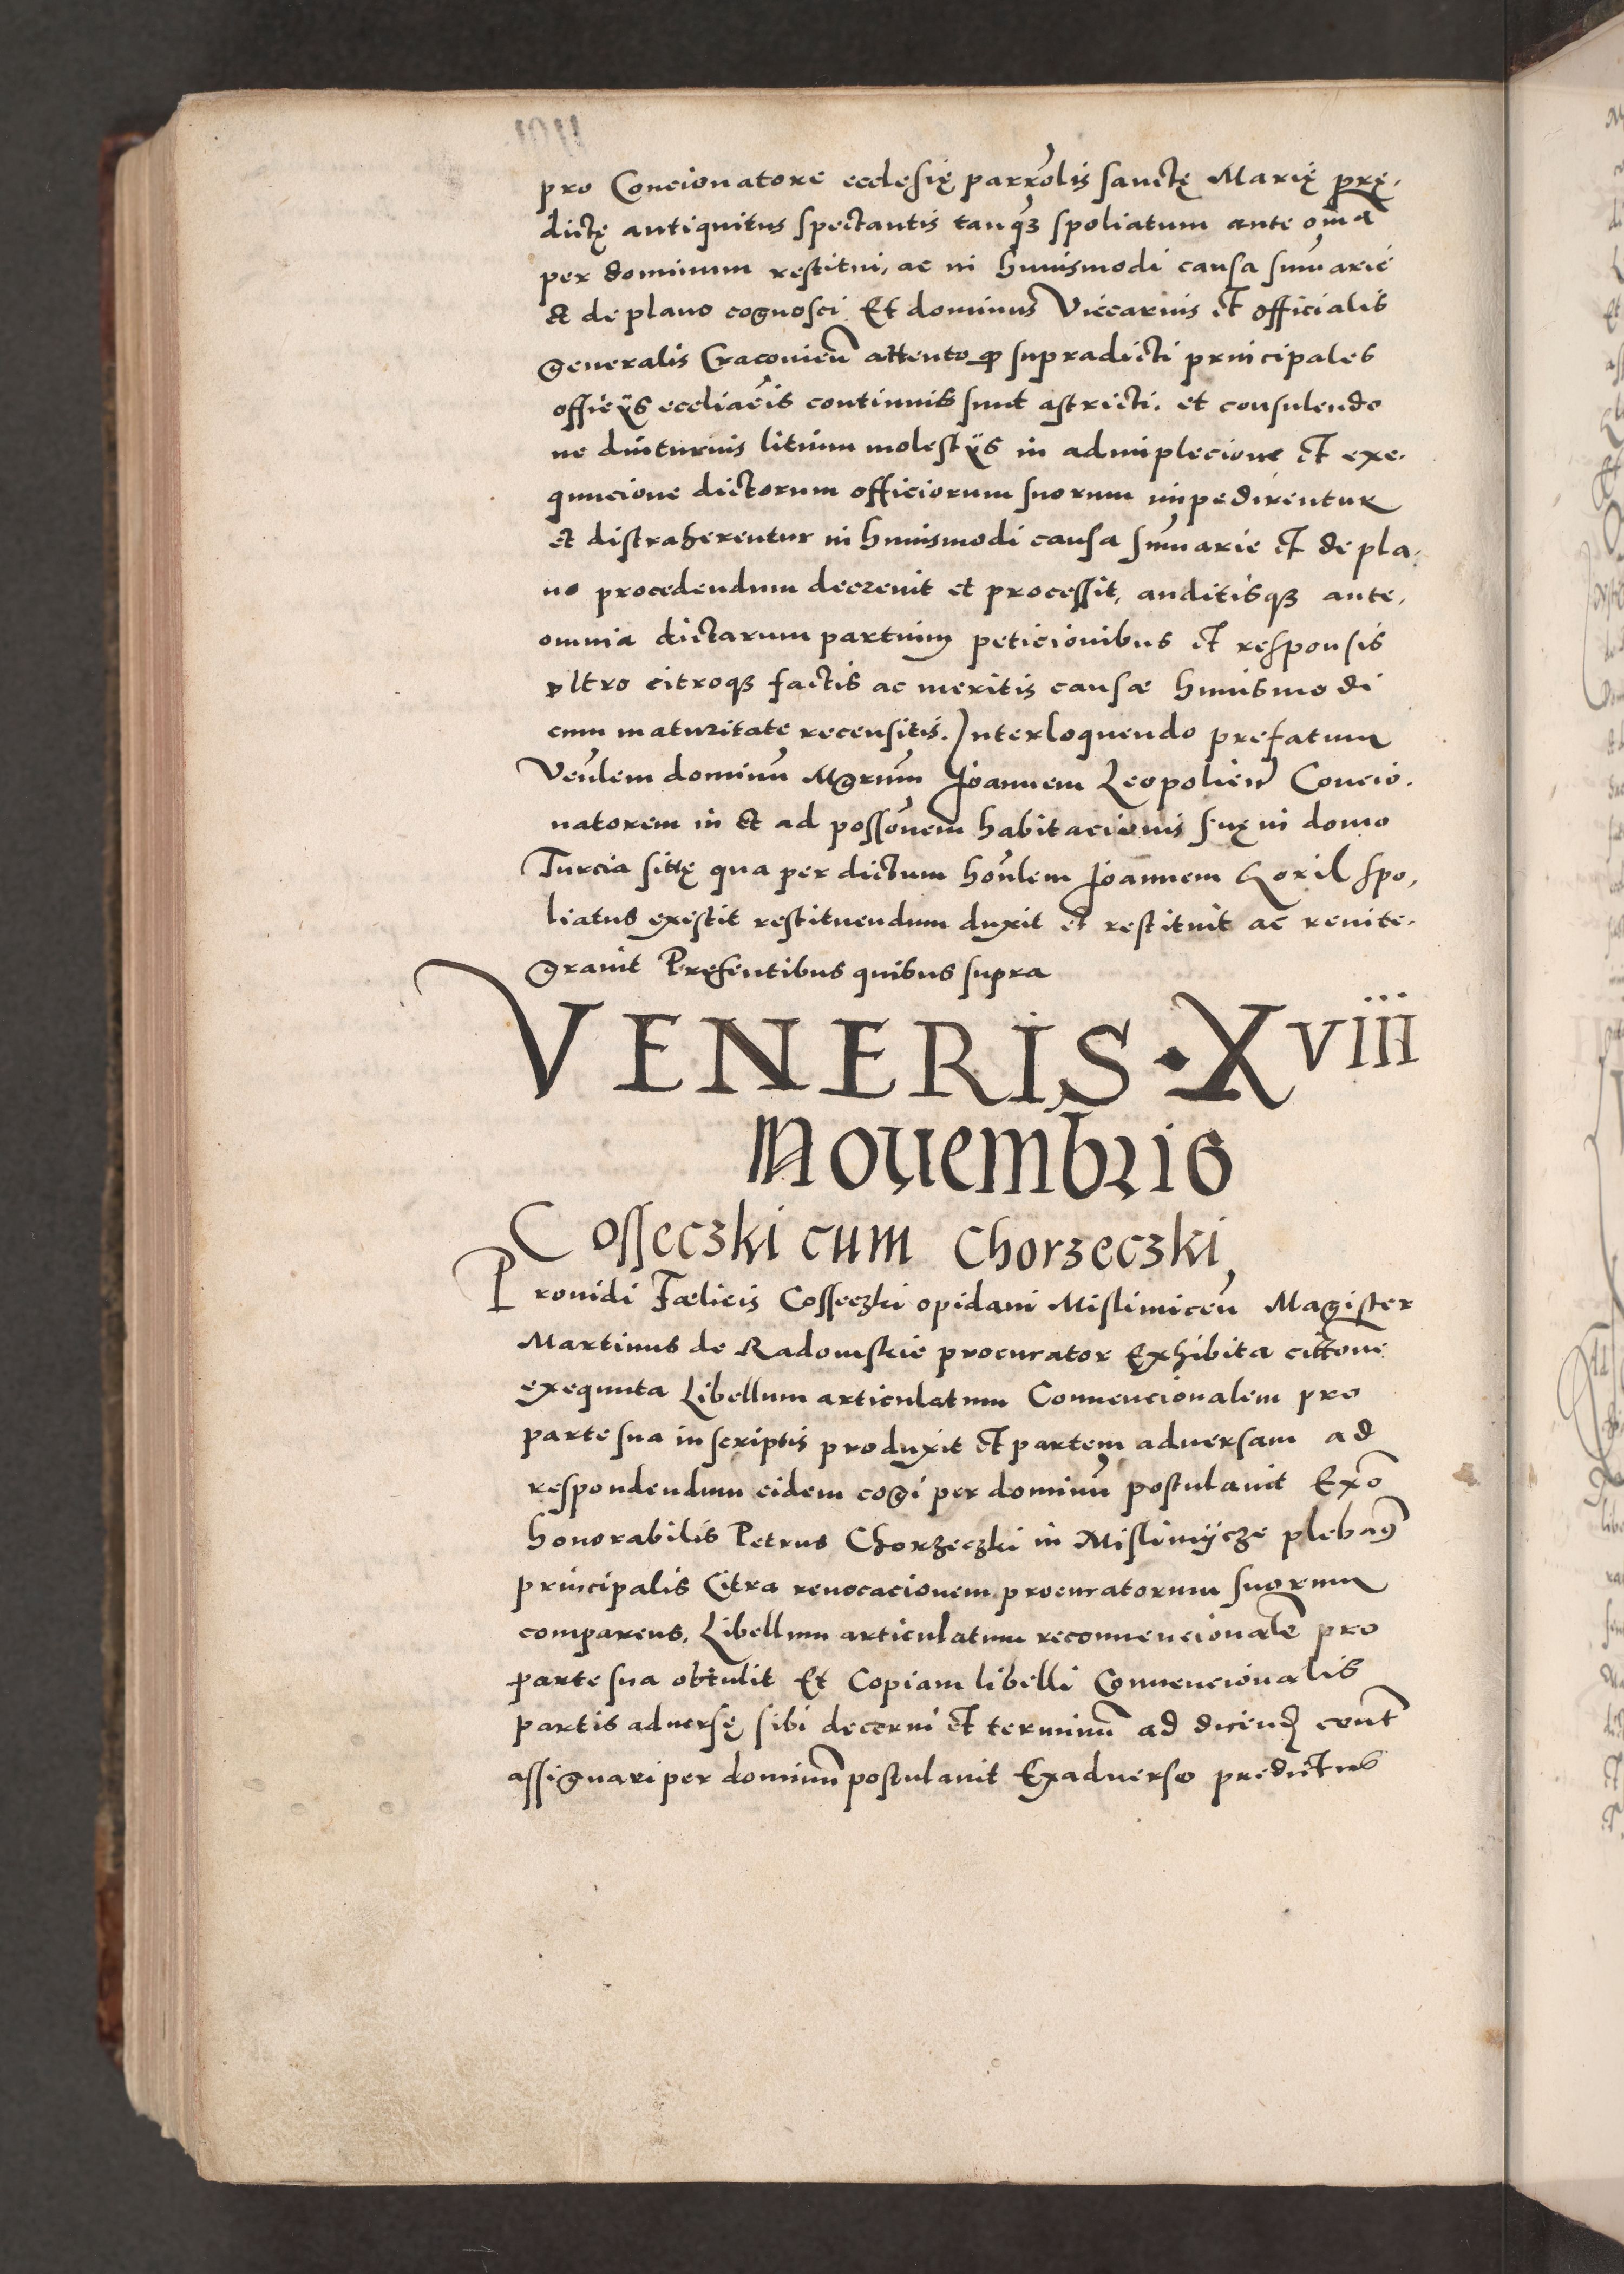 pro Concionatore ecclesię parro̅lis sanctę Marię prę.
dictę antiquitus spectantis tanq̃ꝫ spoliatum ante om̅a
per dominum restitui, ac in huiusmodi causa sum̅arie
& de plano cognosci. Et dominus Viccarius et officialis
generalis Cracovien̅ attento ꝙ supradicti principales
officijs eccliac̅is continuis sunt astricti. et consulendo
ne diuturnis litium molestijs in adimplecione et exe.
qnucione dictorum officiorum suorum impedirentur
et distraherentur in huiusmodi causa sum̅arie et de pla.
no procedendum decrevit et processit, auditisqꝫ ante,
omnia dictarum partium peticionibus et responsis
vltro citroqꝫ factis ac meritis causæ huiusmodi
cum maturitate recensitis. Interloquendo prefatum
Ven̅lem dominu̅ Mgrum̅ Joannem Leopolien̅ Concio.
natorem in & ad posso̅nem habitacionis suę in domo
Turcia sittę qua per dictum hon̅lem Joannem Koril spo,
liatus existit restituendum duxit et restituit ac reinte.
gravit Pręsentibus quibus supra
VENERIS · Xviii
Novembris
Cosseczki cum Chorzeczki
Providi Fælicis Cosseczki opidani Mislimicen̅ Magister
Martinus de Radomskie procurator Exhibita citto̅ne
exequuta Libellum articulatum Convencionalem pro
parte sua in scriptis produxit et partem adversam ad
respondendum eidem cogi per dominu̅ postulavit Exo̅
honorabilis Petrus Chorzeczki in Mislimijcze plebanꝯ
principalis Citra revocacionem procuratorum suorum
comparens, Libellum articulatum reconvencionale̅ pro
parte sua obtulit Et Copiam libelli Convencionalis
partis adversę sibi decerni et terminu̅ ad dicend̅ cont̅
assignari per dominu̅ postulavit Exadverso predictus